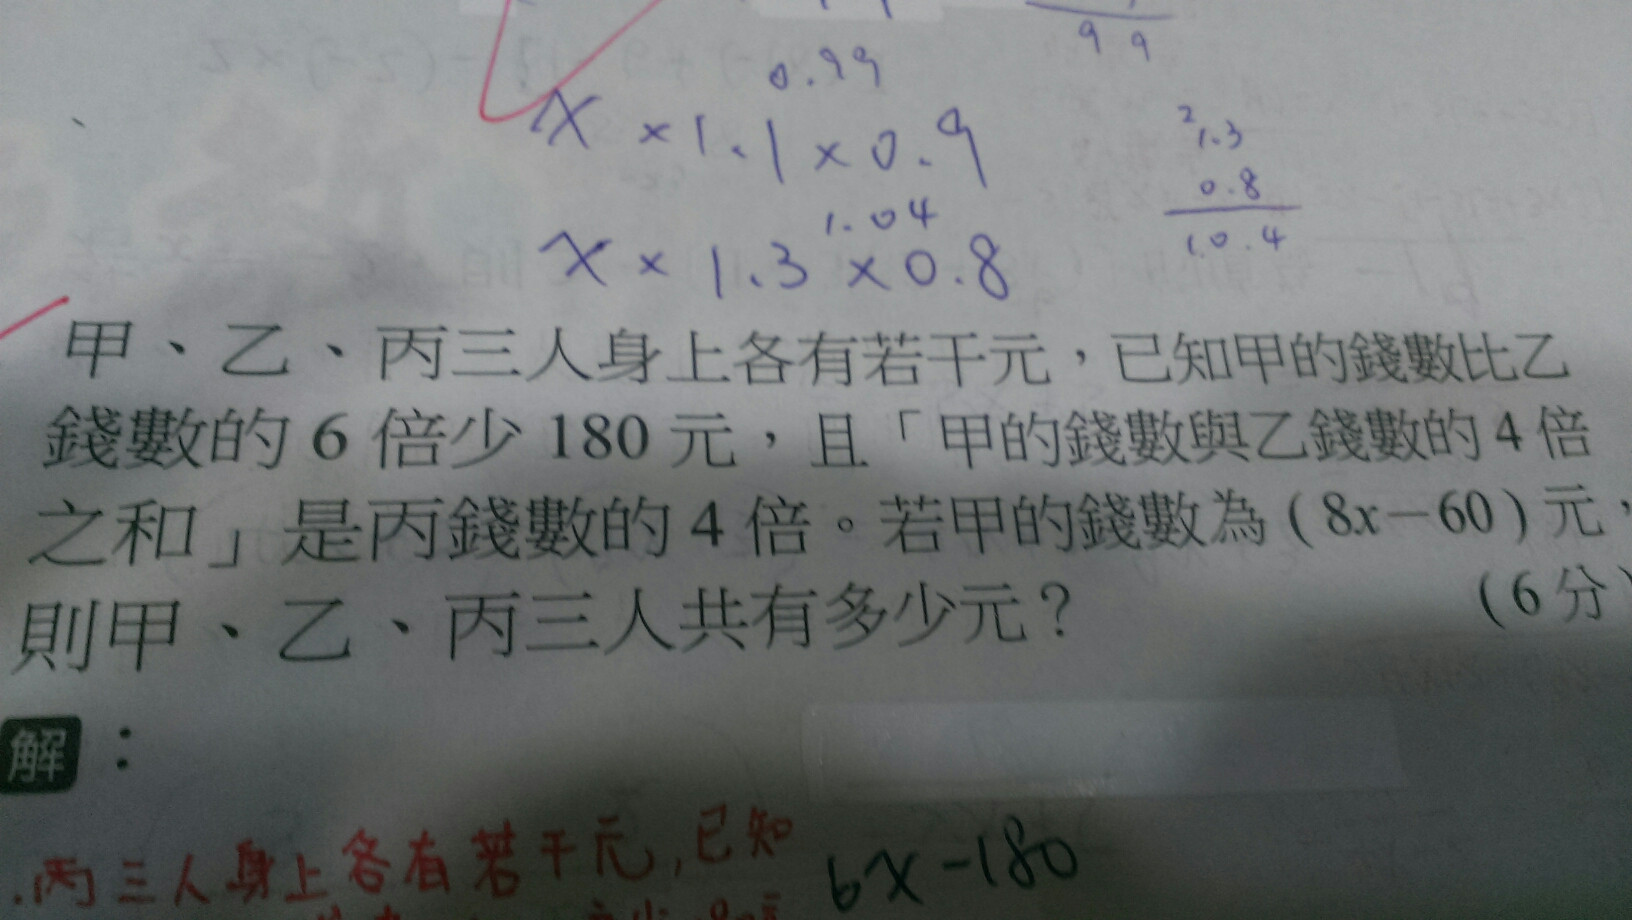 9 9
0.99
x × 1.1 × 0.9
2
1.3
0.8
1.04
x × 1.3 × 0.8
10.4
甲、乙、丙三人身上各有若干元，已知甲的錢數比乙
錢數的 6 倍少 180 元，且「甲的錢數與乙錢數的 4 倍
之和」是丙錢數的 4 倍。若甲的錢數為 ( 8x－60 ) 元，
則甲、乙、丙三人共有多少元？ ( 6 分 )
解：
丙三人身上各有若干元,已知
6x-180